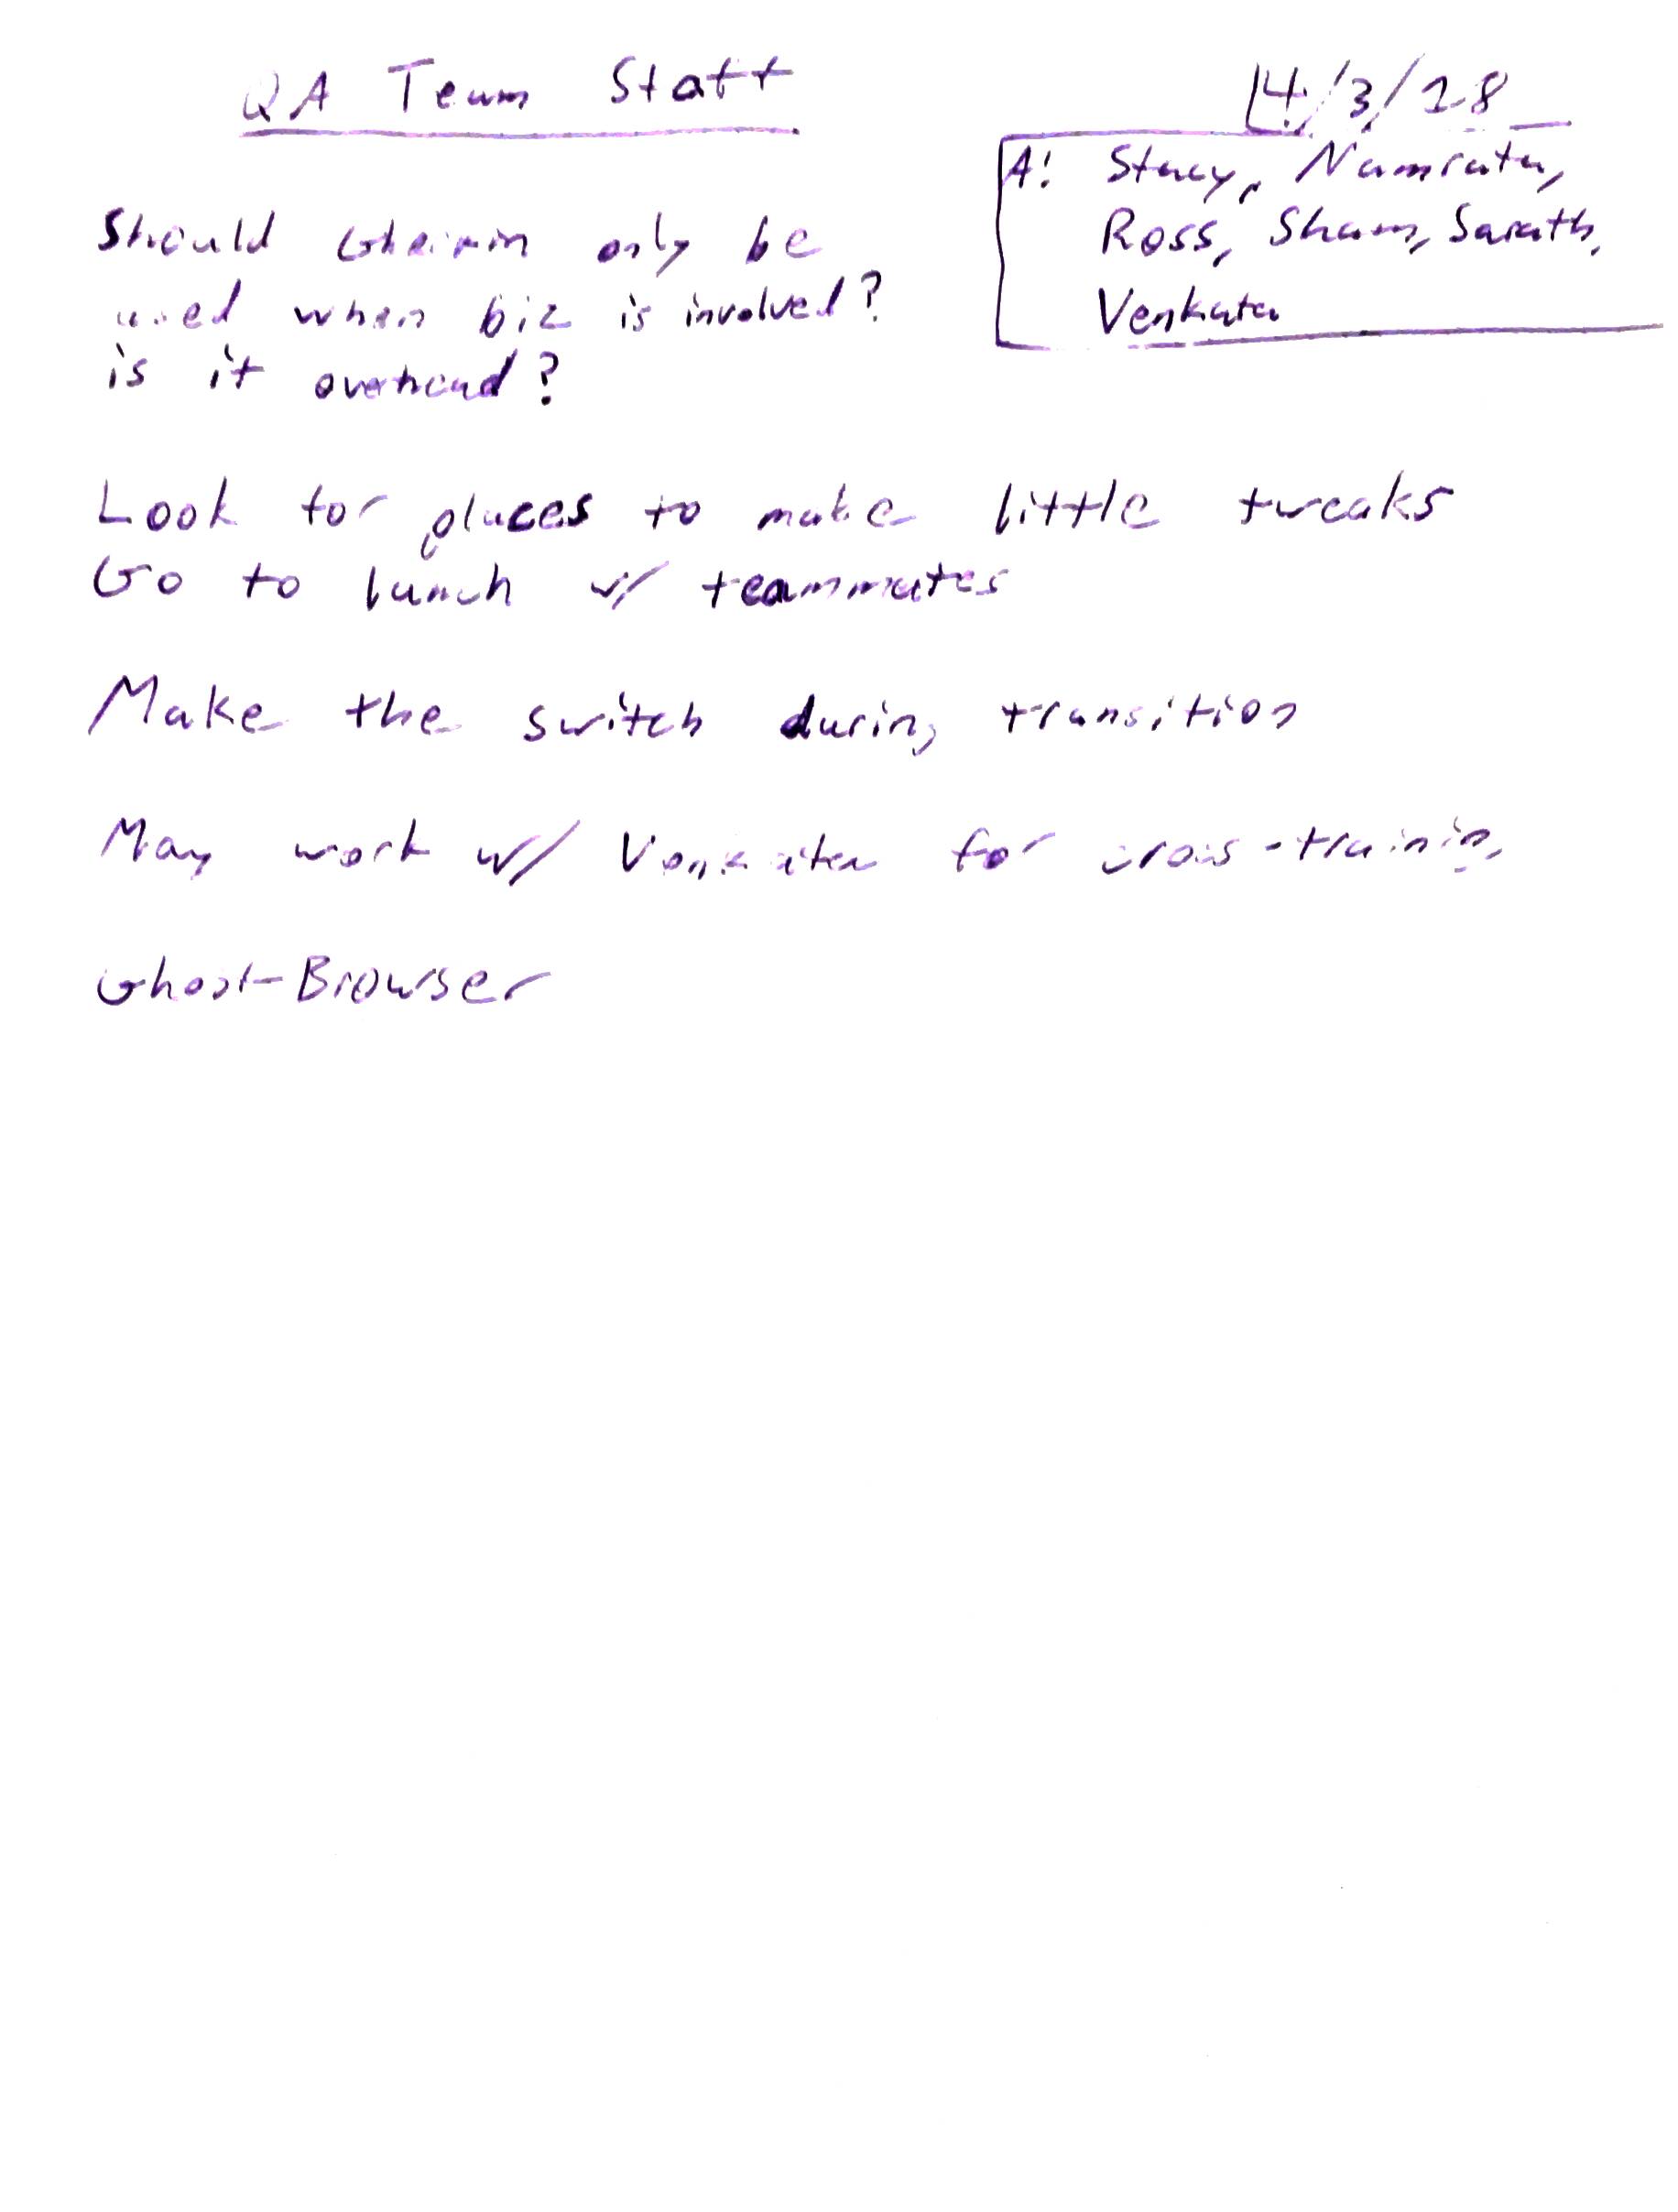 QA Team Staff
4/3/18
A: Stacy, Namrata,
Ross, Sham, Sarath,
Venkata
Should Gherkin only be
used when biz is involved?
is it overhead?
Look for places to make little tweaks
Go to lunch w/ teammates
Make the switch during transition
May work w/ Venkata for cross-training
Ghost-Browser